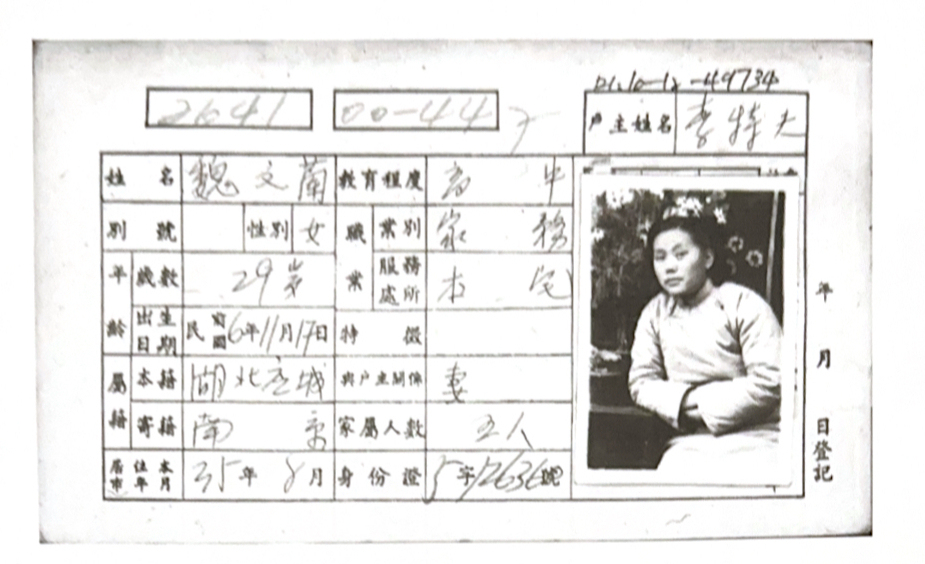 01.10-12-49734
2641 00-44
戶主姓名 李特夫
姓名 魏文蘭 教育程度 高中
別號 性別 女 職業 業別 家務
年齡 歲數 29岁 服務處所 本宅
出生日期 民國 6年11月17日 特徵
屬籍 本籍 湖北应城 與戶主關係 妻
寄籍 南京 家屬人數 五人
居住本市年月 35年8月 身份證 字12636號
年月日登記